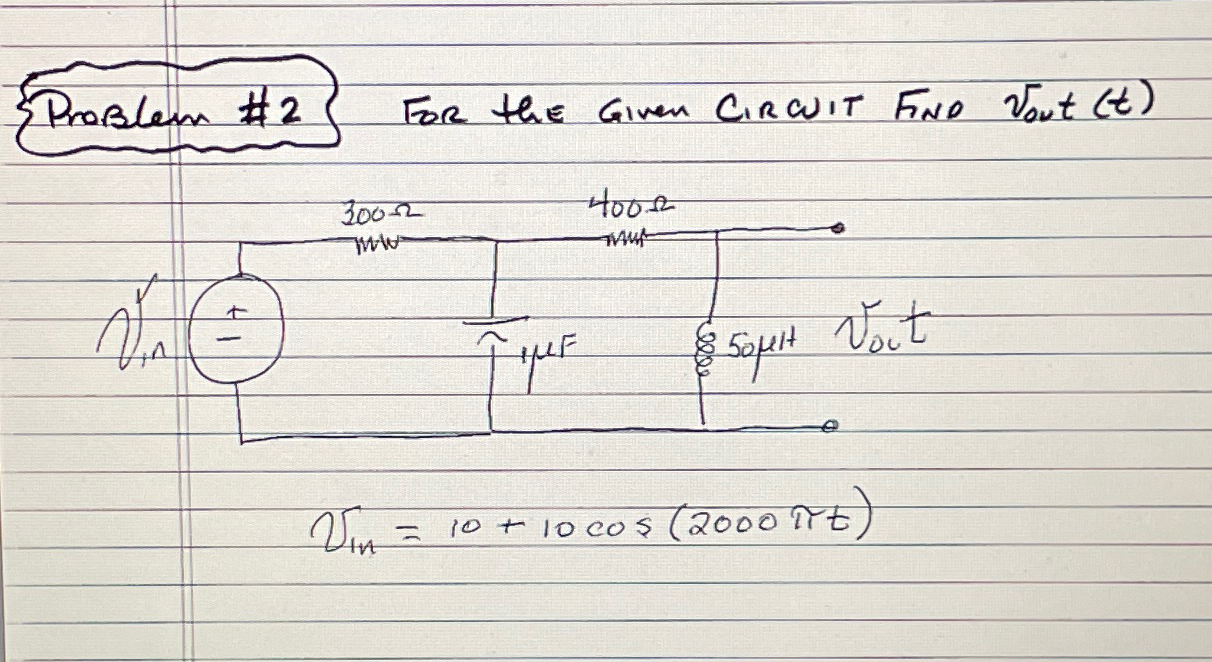 Problem #2 FOR the Given CIRCUIT FIND Vout (t)
300Ω 400Ω
+
−
Vin 1μF 50μH Vout
Vin = 10 + 10 cos (2000 πt)